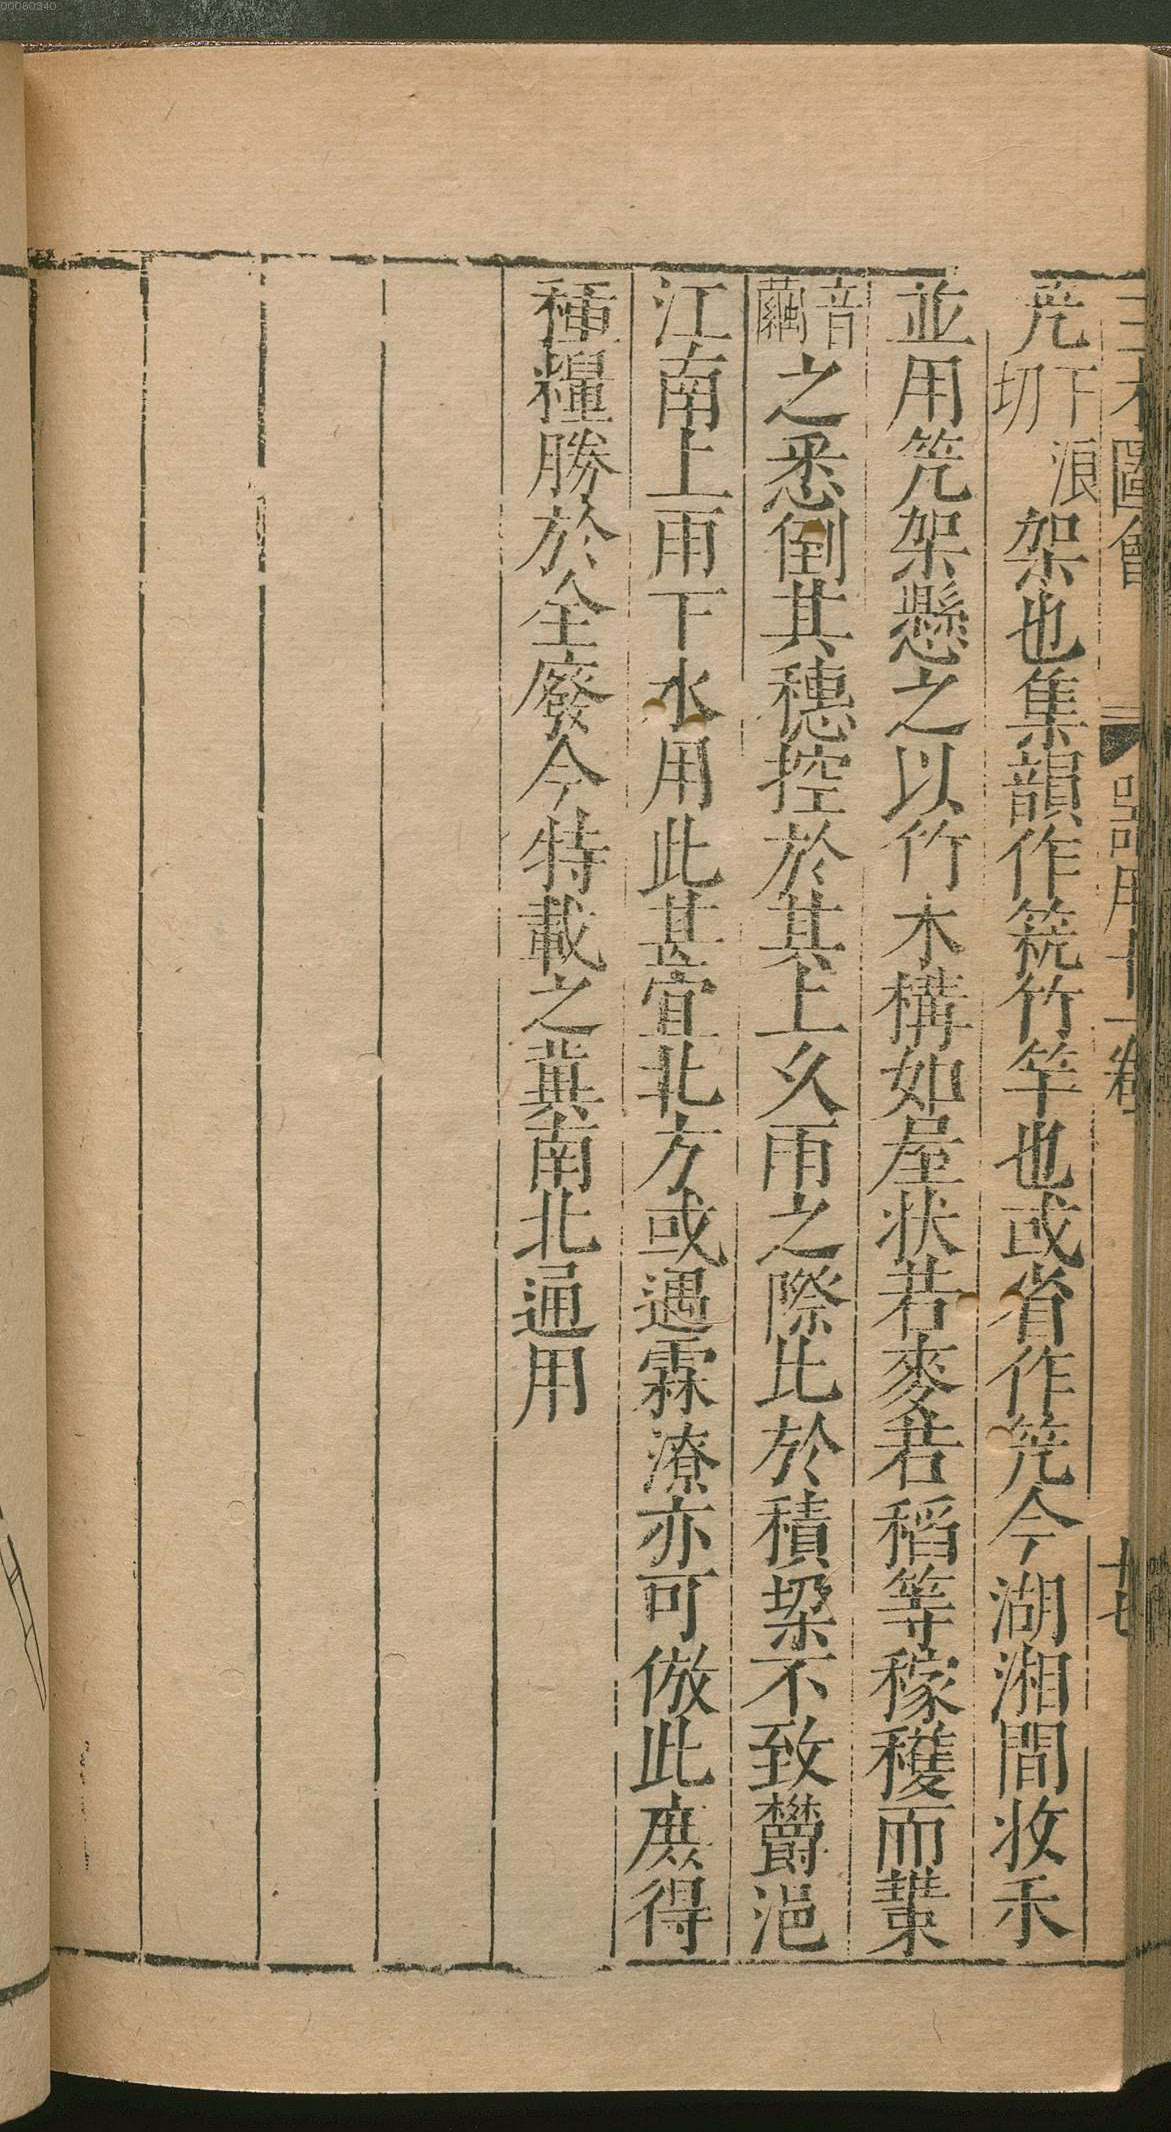 三才圖會 器用十一卷 十七
笐下浪切架也集韻作䈵竹竿也或省作笐今湖湘間收禾
並用笐架懸之以竹木構如屋狀若麥若稻等稼穫而䅌
音繭之悉倒其穗控於其上久雨之際比於積垜不致鬱浥
江南上雨下水用此甚宜北方或遇霖潦亦可倣此庶得
種糧勝於全廢今特載之冀南北通用
00080340